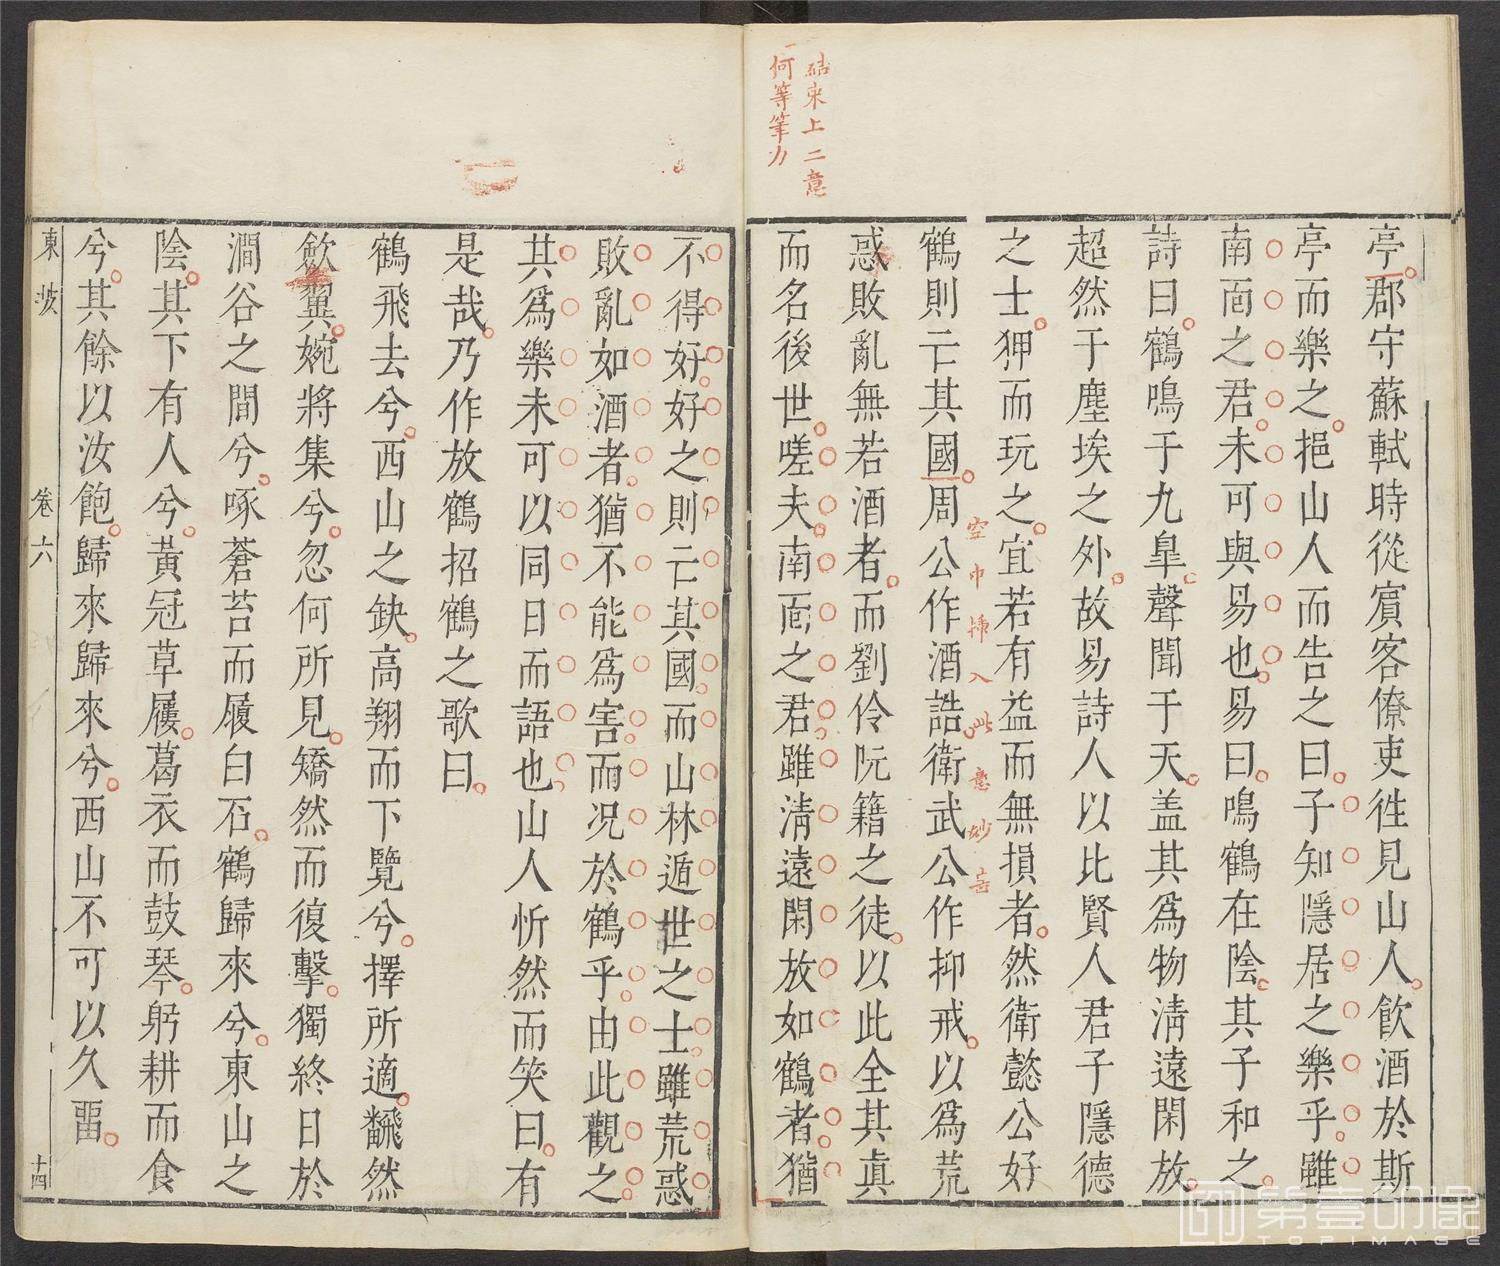 結束上二意
何等筆力
亭郡守蘇軾時從賓客僚吏徃見山人飲酒於斯
亭而樂之挹山人而告之曰子知隱居之樂乎雖
南靣之君未可與易也易曰鳴鶴在陰其子和之
詩曰鶴鳴于九臯聲聞于天盖其爲物淸遠閑放
超然于塵埃之外故易詩人以比賢人君子隱德
之士狎而玩之宜若有益而無損者然衛懿公好
空中揷入此意妙甚
鶴則亡其國周公作酒誥衛武公作抑戒以爲荒
惑敗亂無若酒者而劉伶阮籍之徒以此全其眞
而名後世嗟夫南靣之君雖淸遠閑放如鶴者猶
不得好好之則亡其國而山林遁世之士雖荒惑
敗亂如酒者猶不能爲害而况於鶴乎由此觀之
其爲樂未可以同日而語也山人忻然而笑曰有
是哉乃作放鶴招鶴之歌曰
鶴飛去兮西山之缺高翔而下覽兮擇所適飜然
歛翼婉將集兮忽何所見矯然而復擊獨終日於
澗谷之間兮啄蒼苔而履白石鶴歸來兮東山之
陰其下有人兮黃冠草屨葛衣而鼓琴躬耕而食
兮其餘以汝飽歸來歸來兮西山不可以久畱
東坡
卷六
十四
第壹印像
TOPIMAGE